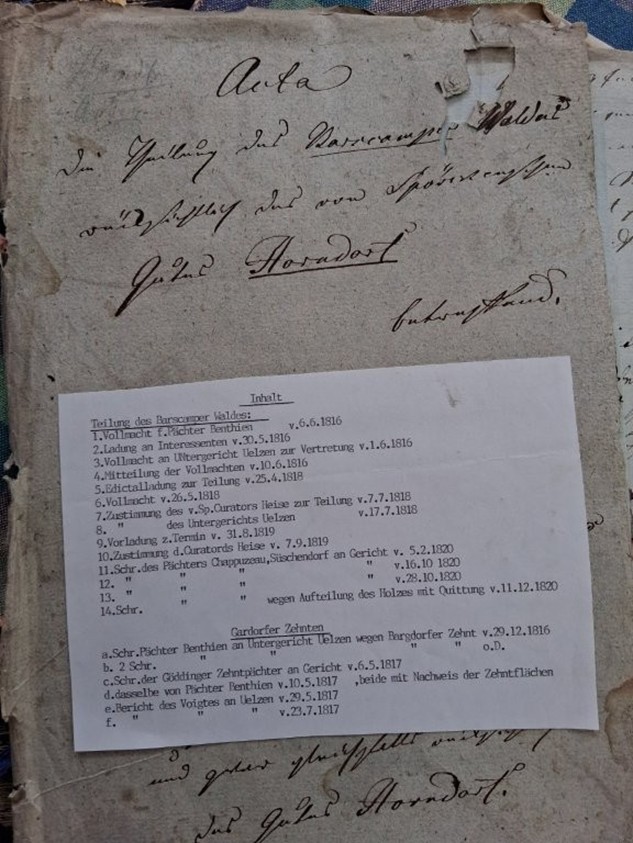 Acta
die Theilung des Barscamper Waldes
rücksichtlich des von Spörckenschen
Gutes Horndorf
betreffend.
Inhalt
Teilung des Barscamper Waldes:
1.Vollmacht f.Pächter Benthien v.6.6.1816
2.Ladung an Interessenten v.30.5.1816
3.Vollmacht an UNtergericht Uelzen zur Vertretung v.1.6.1816
4.Mitteilung der Vollmachten v.10.6.1816
5.Edictalladung zur Teilung v.25.4.1818
6.Vollmacht v.26.5.1818
7.Zustimmung des v.Sp.Curators Heise zur Teilung v.7.7.1818
8. " des Untergerichts Uelzen v.17.7.1818
9.Vorladung z.Termin v. 31.8.1819
10.Zustimmung d.Curatords Heise v. 7.9.1819
11.Schr.des Pächters Chappuzeau,Süschendorf an Gericht v. 5.2.1820
12. " " " " v.16.10 1820
13. " " " " v.28.10.1820
14.Schr. " " wegen Aufteilung des Holzes mit Quittung v.11.12.1820
Gardorfer Zehnten
a.Schr.Pächter Benthien an Untergericht Uelzen wegen Bargdorfer Zehnt v.29.12.1816
b. 2 Schr. " " " " o.D.
c.Schr.der Göddinger Zehntpächter an Gericht v.6.5.1817
d.dasselbe von Pächter Benthien v.10.5.1817 ,beide mit Nachweis der Zehntflächen
e.Bericht des Voigtes an Uelzen v.29.5.1817
f. " " " v.23.7.1817
und gleichfalls
des Gutes Horndorf.